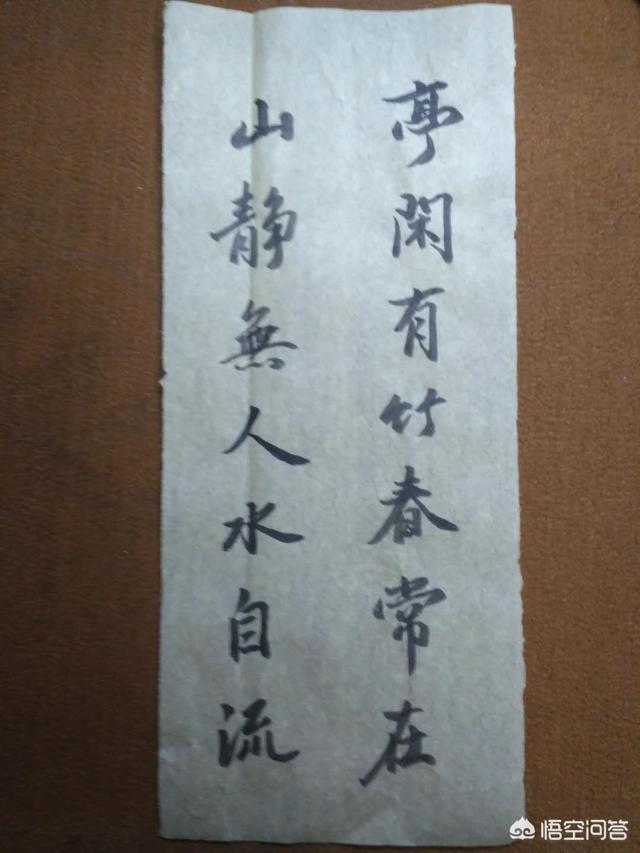 亭閑有竹春常在
山静無人水自流
悟空问答